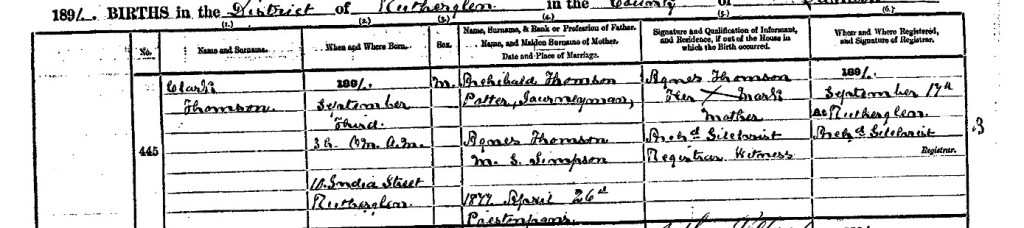 1891. BIRTHS in the District of Rutherglen in the County of
(1.) (2.) (3.) (4.) (5.) (6.)
No. Name and Surname. When and Where Born. Sex. Name, Surname, & Rank or Profession of Father. Name, and Maiden Surname of Mother. Date and Place of Marriage. Signature and Qualification of Informant, and Residence, if out of the House in which the Birth occurred. When and Where Registered, and Signature of Registrar.
Clark 1891. M. Archibald Thomson Agnes Thomson 1891.
Thomson September Potter, Journeyman, Her X Mark September 17th
Third. Mother At Rutherglen.
445 3h. 0m. A.M. Agnes Thomson Archd Gilchrist Archd Gilchrist
M. S. Simpson Registrar Witness Registrar.
10. India Street
Rutherglen. 1877 April 26th
Prestonpans.